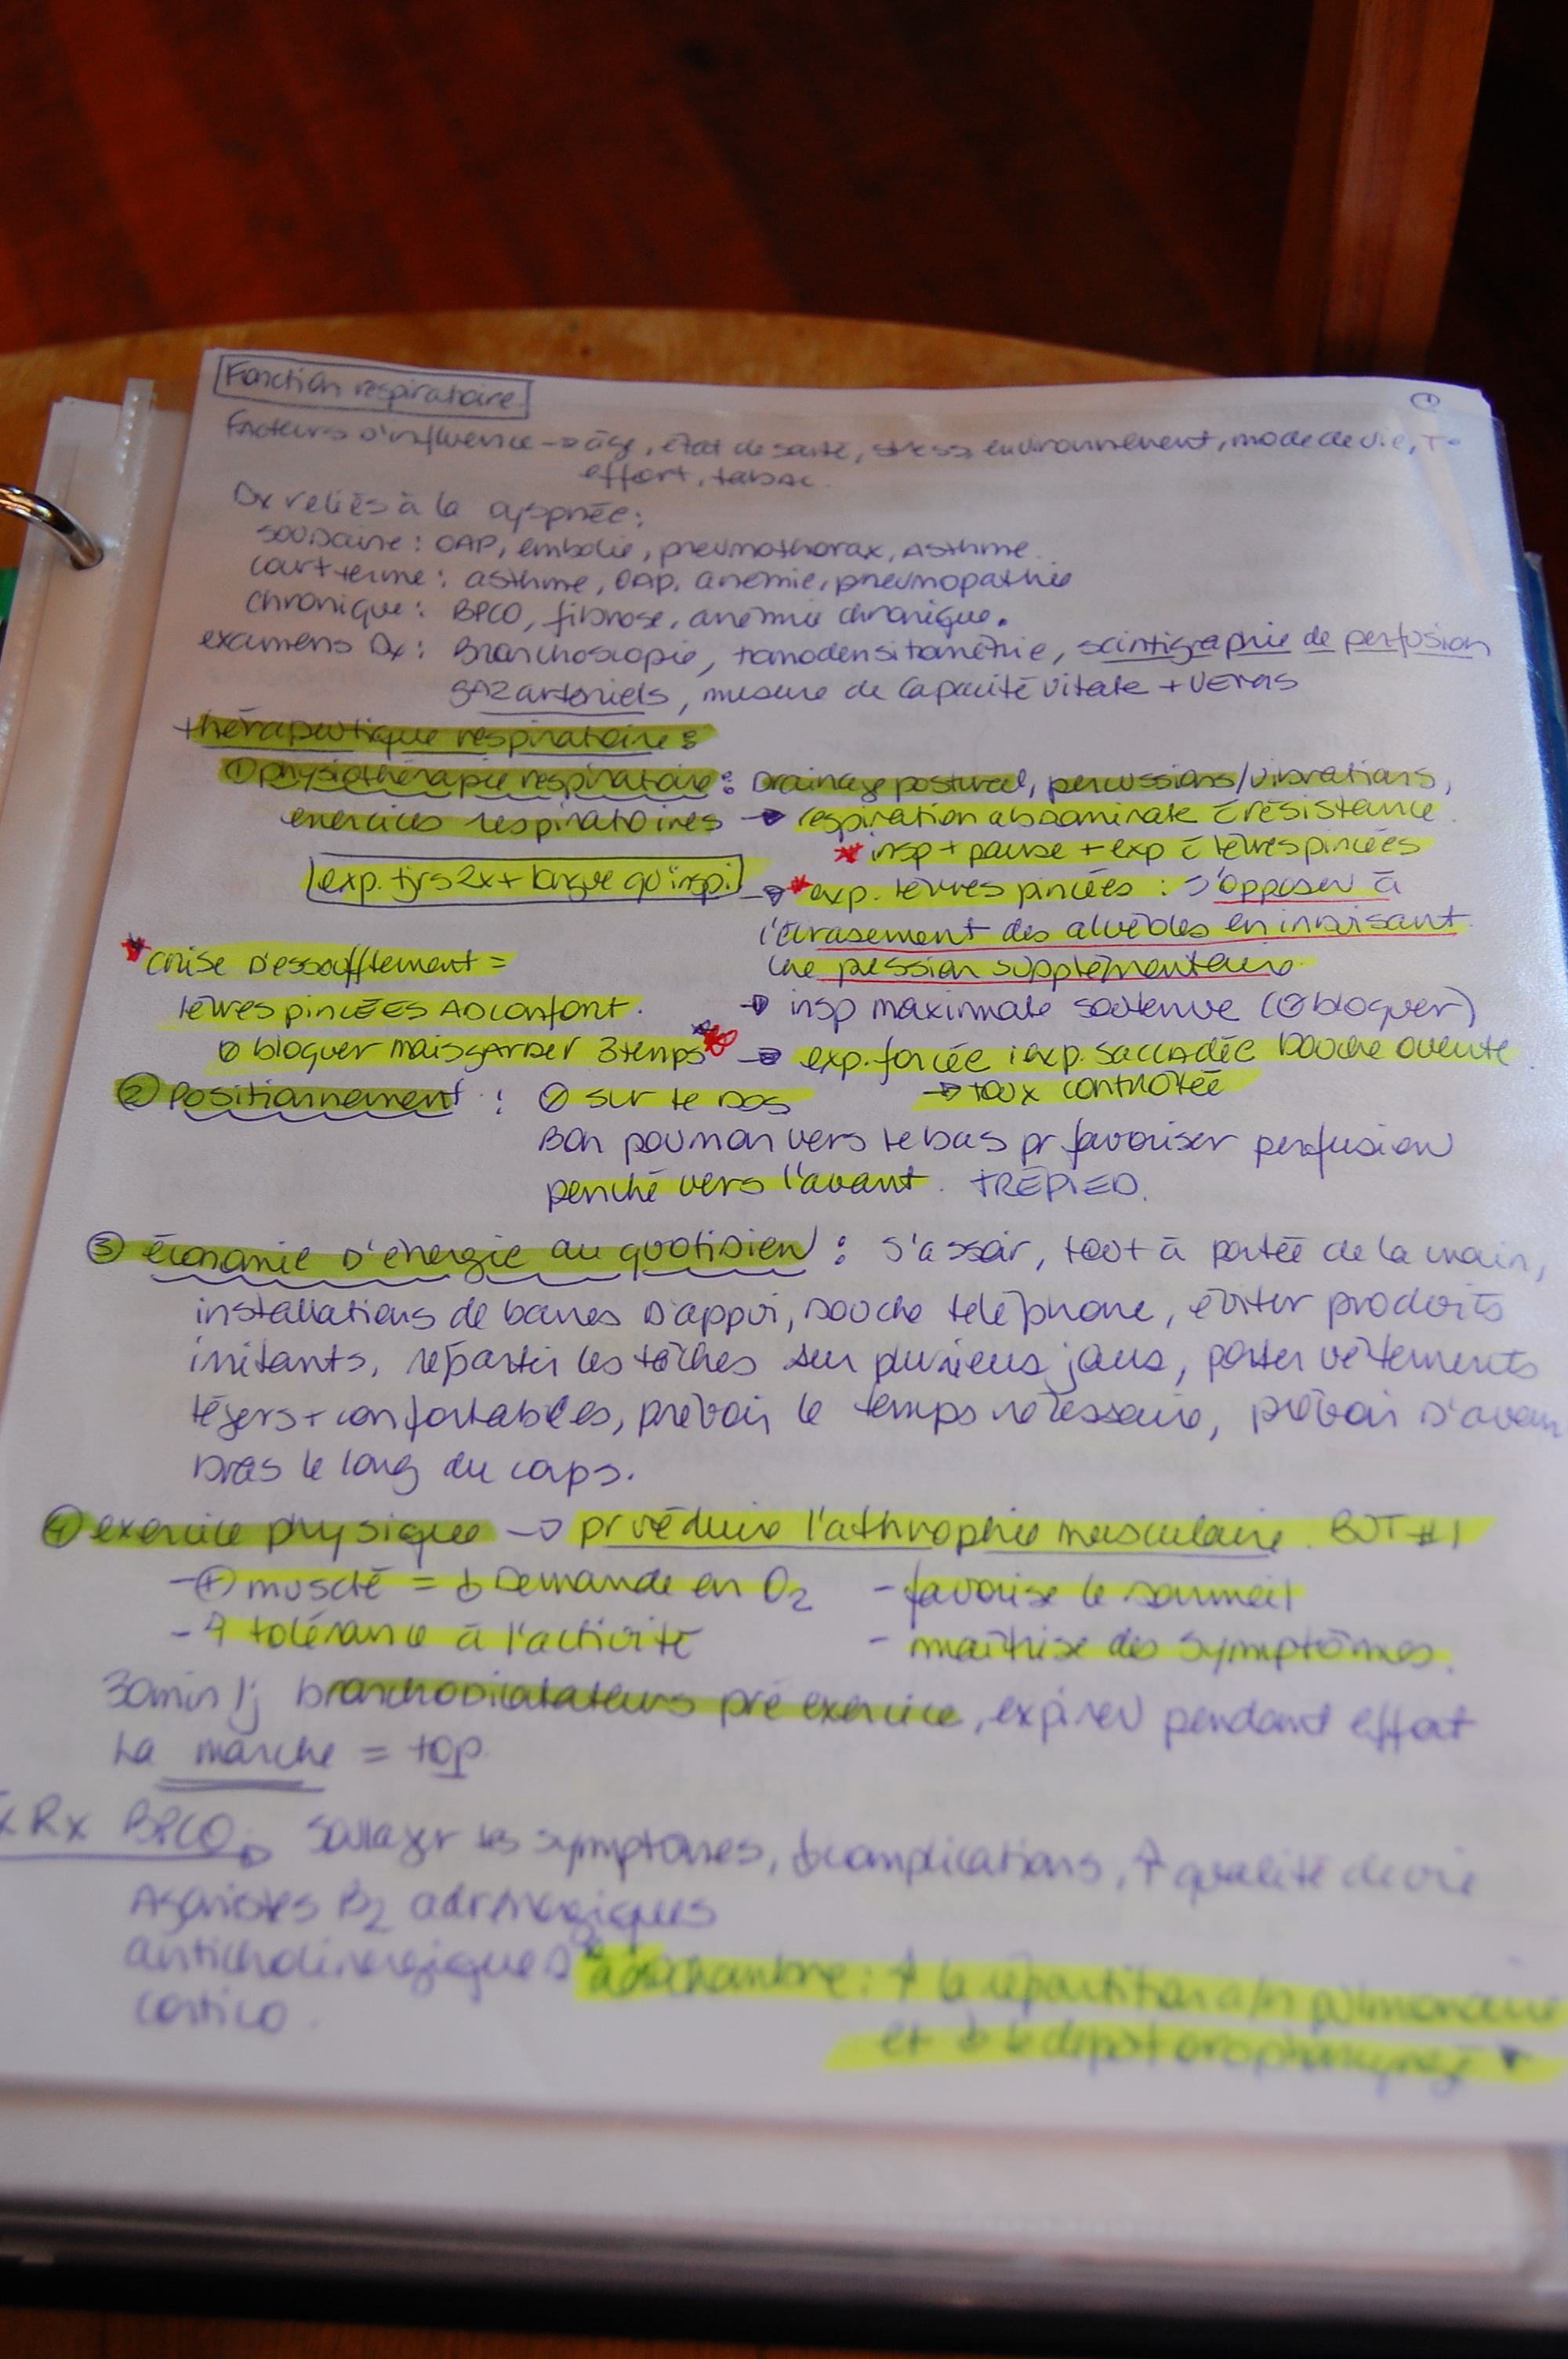 Fonction respiratoire.
①
Facteurs d'influence → âge, état de santé, stress, environnement, mode de vie, T°
effort, tabac.
Dx reliés à la dyspnée :
soudaine : OAP, embolie, pneumothorax, asthme.
court terme : asthme, OAP, anémie, pneumopathie
chronique : BPCO, fibrose, anémie chronique.
examens Dx : Bronchoscopie, tomodensitométrie, scintigraphie de perfusion
gaz artériels, mesure de capacité vitale + VEMS
thérapeutique respiratoire :
① physiothérapie respiratoire : Drainage postural, percussions/vibrations,
exercices respiratoires → respiration abdominale c̄ résistance.
* insp + pause + exp c̄ lèvres pincées
exp. tjrs 2x + longue qu'insp.
→ * exp. lèvres pincées : s'opposer à
l'écrasement des alvéoles en induisant
une pression supplémentaire.
* crise d'essoufflement =
lèvres pincées ad confort.
∅ bloquer mais garder 3 temps
→ insp maximale soutenue (∅ bloquer)
→ exp. forcée : exp. saccadée bouche ouverte
→ toux contrôlée
② Positionnement : ∅ sur le dos
Bon poumon vers le bas pr favoriser perfusion
penché vers l'avant. TRÉPIED.
③ économie d'énergie au quotidien : s'assoir, tout à portée de la main,
installations de barres d'appui, douche téléphone, éviter produits
irritants, répartir les tâches sur plusieurs jours, porter vêtements
légers + confortables, prévoir le temps nécessaire, prévoir d'avoir
bras le long du corps.
④ exercice physique → pr réduire l'athrophie musculaire. BUT #1
- ⊕ musclé = ↓ Demande en O2
- favorise le sommeil
- ↑ tolérance à l'activité
- maîtrise des symptômes.
30min/j bronchodilatateurs pré exercice, expirer pendant effort
La marche = top
Rx BPCO → Soulager les symptômes, ↓ complications, ↑ qualité de vie
Agonistes B2 adrénergiques
anticholinergiques
* aérochambre : ↑ la répartition a/n pulmonaire
et ↓ le dépôt oropharyngé
cortico.